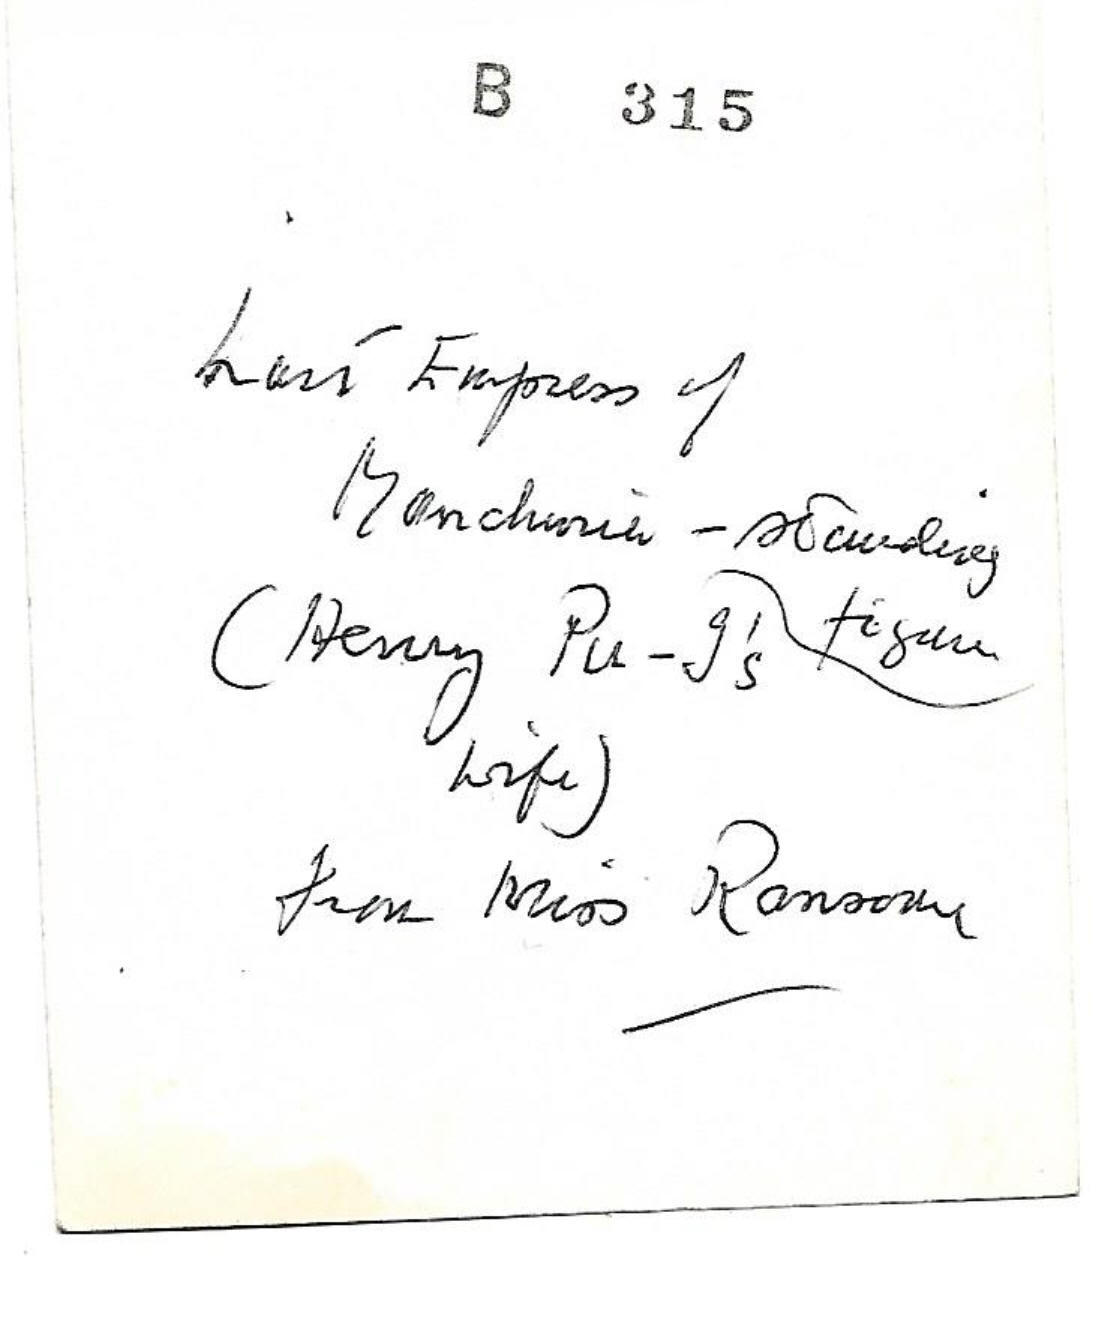 B 315
Last Empress of
Manchuria - standing
figure
(Henry Pu-Yi's
wife)
From Miss Ransome